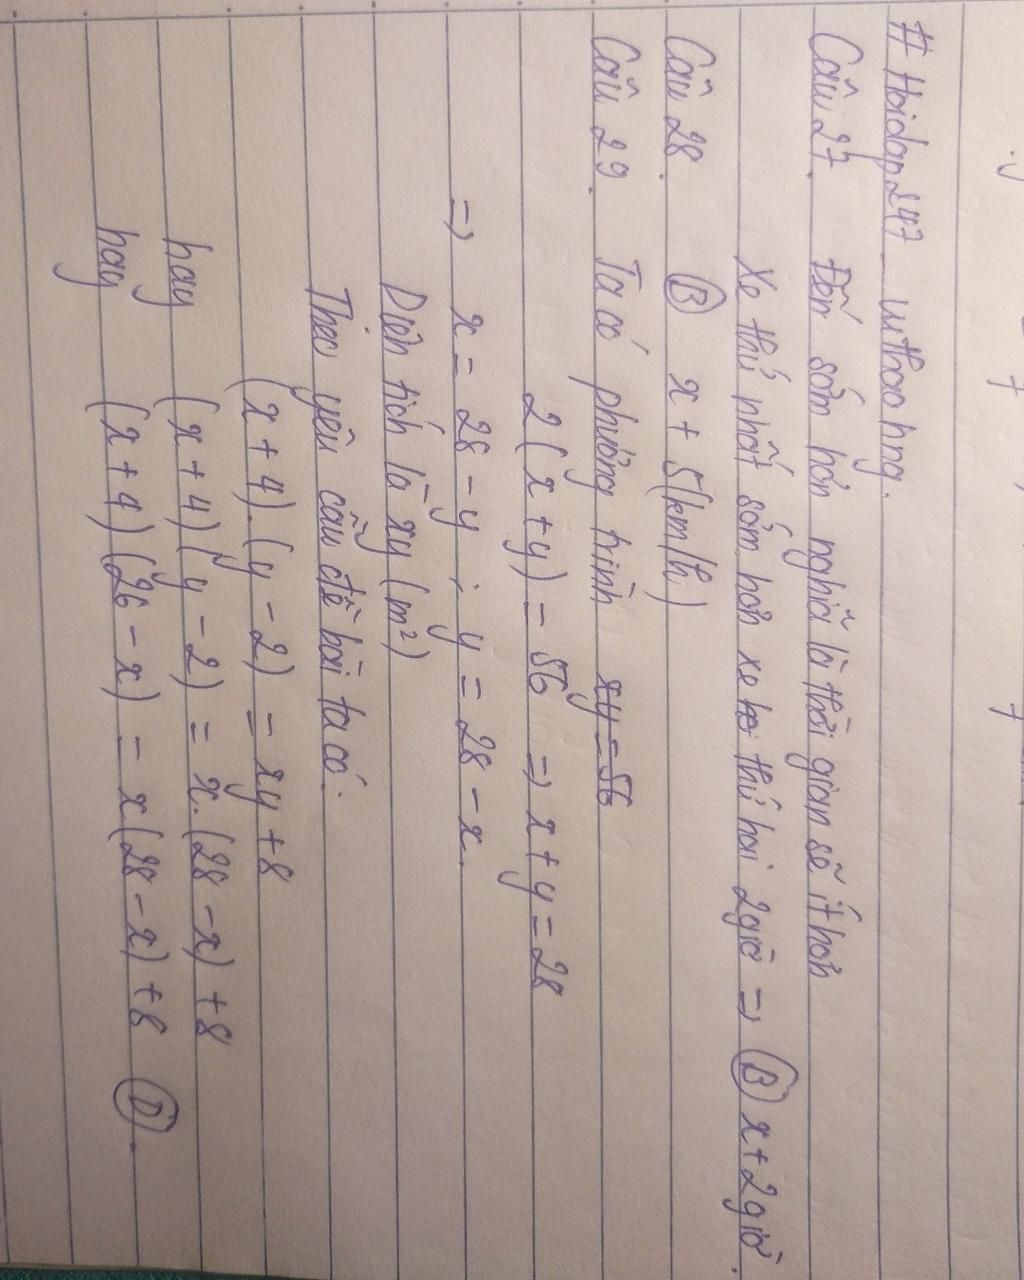 # Hoidap247_uthoahng.
Câu 27. Đến sớm hơn nghĩa là thời gian sẽ ít hơn
Xe thứ nhất sớm hơn xe thứ hai 2giờ => (B) x + 2giờ.
Câu 28. (B) x + 5(km/h)
Câu 29. Ta có phương trình xy = 56
2(x+y) = 56 => x + y = 28
=> x = 28 - y ; y = 28 - x.
Diện tích là xy (m²)
Theo yêu cầu đề bài ta có:
(x+4).(y-2) = xy + 8
hay (x+4)(y-2) = x.(28-x) + 8
hay (x+4)(26-x) = x(28-x) + 8 (D).